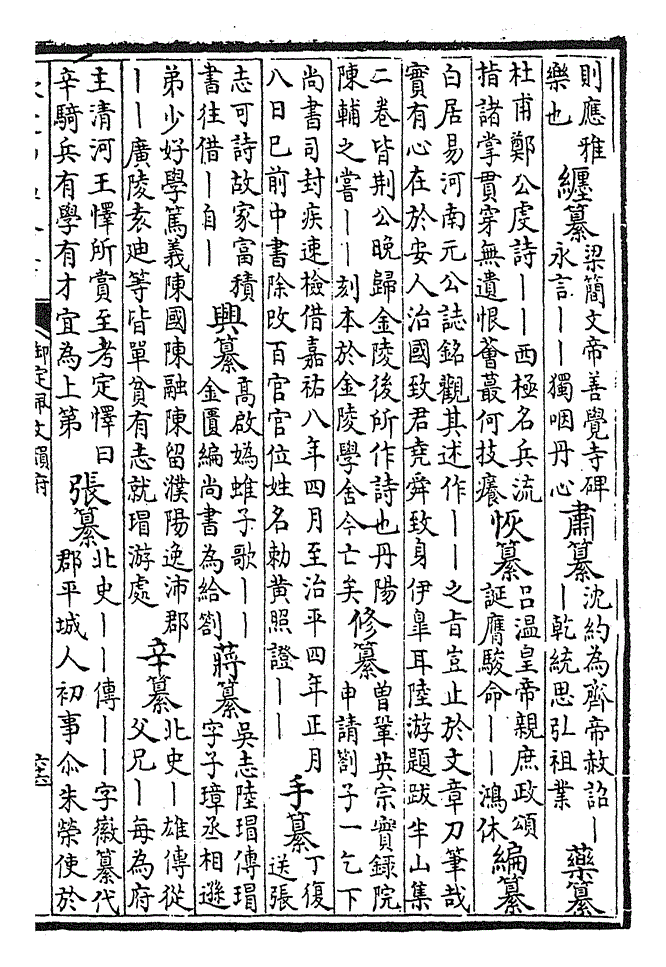 則應雅
樂也
纒纂
梁簡文帝善覺寺碑
永言――獨咽丹心
肅纂
沈約為齊帝赦詔―
―乾統思引祖業
藥纂
杜甫鄭公虔詩――西極名兵流
指諸掌貫穿無遺恨薈蕞何技癢
恢纂
吕温皇帝親庶政頌
誕膺駿命――鴻休
編纂
白居易河南元公誌銘觀其述作――之旨豈止於文章刀筆哉
實有心在於安人治國致君堯舜致身伊臯耳陸游題跋半山集
二卷皆荆公晚歸金陵後所作詩也丹陽
陳輔之嘗――刻本於金陵學舍今亡矣
修纂
曾鞏英宗實録院
申請劄子一乞下
尚書司封疾速檢借嘉祐八年四月至治平四年正月
八日已前中書除改百官官位姓名勅黄照證――
手纂
丁復
送張
志可詩故家富積
書往借―自―
興纂
高啟媯蜼子歌――
金匱編尚書為給劄
蔣纂
吴志陸瑁傳瑁
字子璋丞相遜
弟少好學篤義陳國陳融陳留濮陽逸沛郡
――廣陵袁廸等皆單貧有志就瑁游處
辛纂
北史―雄傳從
父兄―每為府
主清河王懌所賞至考定懌曰
辛騎兵有學有才宜為上第
張纂
北史――傳――字徽纂代
郡平城人初事尒朱榮使於
御定佩文韻府